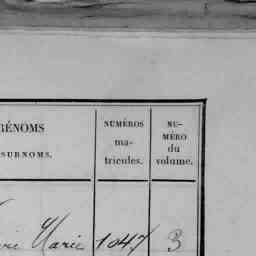 RÉNOMS
SURNOMS.
NUMÉROS
ma-
tricules.
NU-
MÉRO
du
volume.
Marie 1047 3